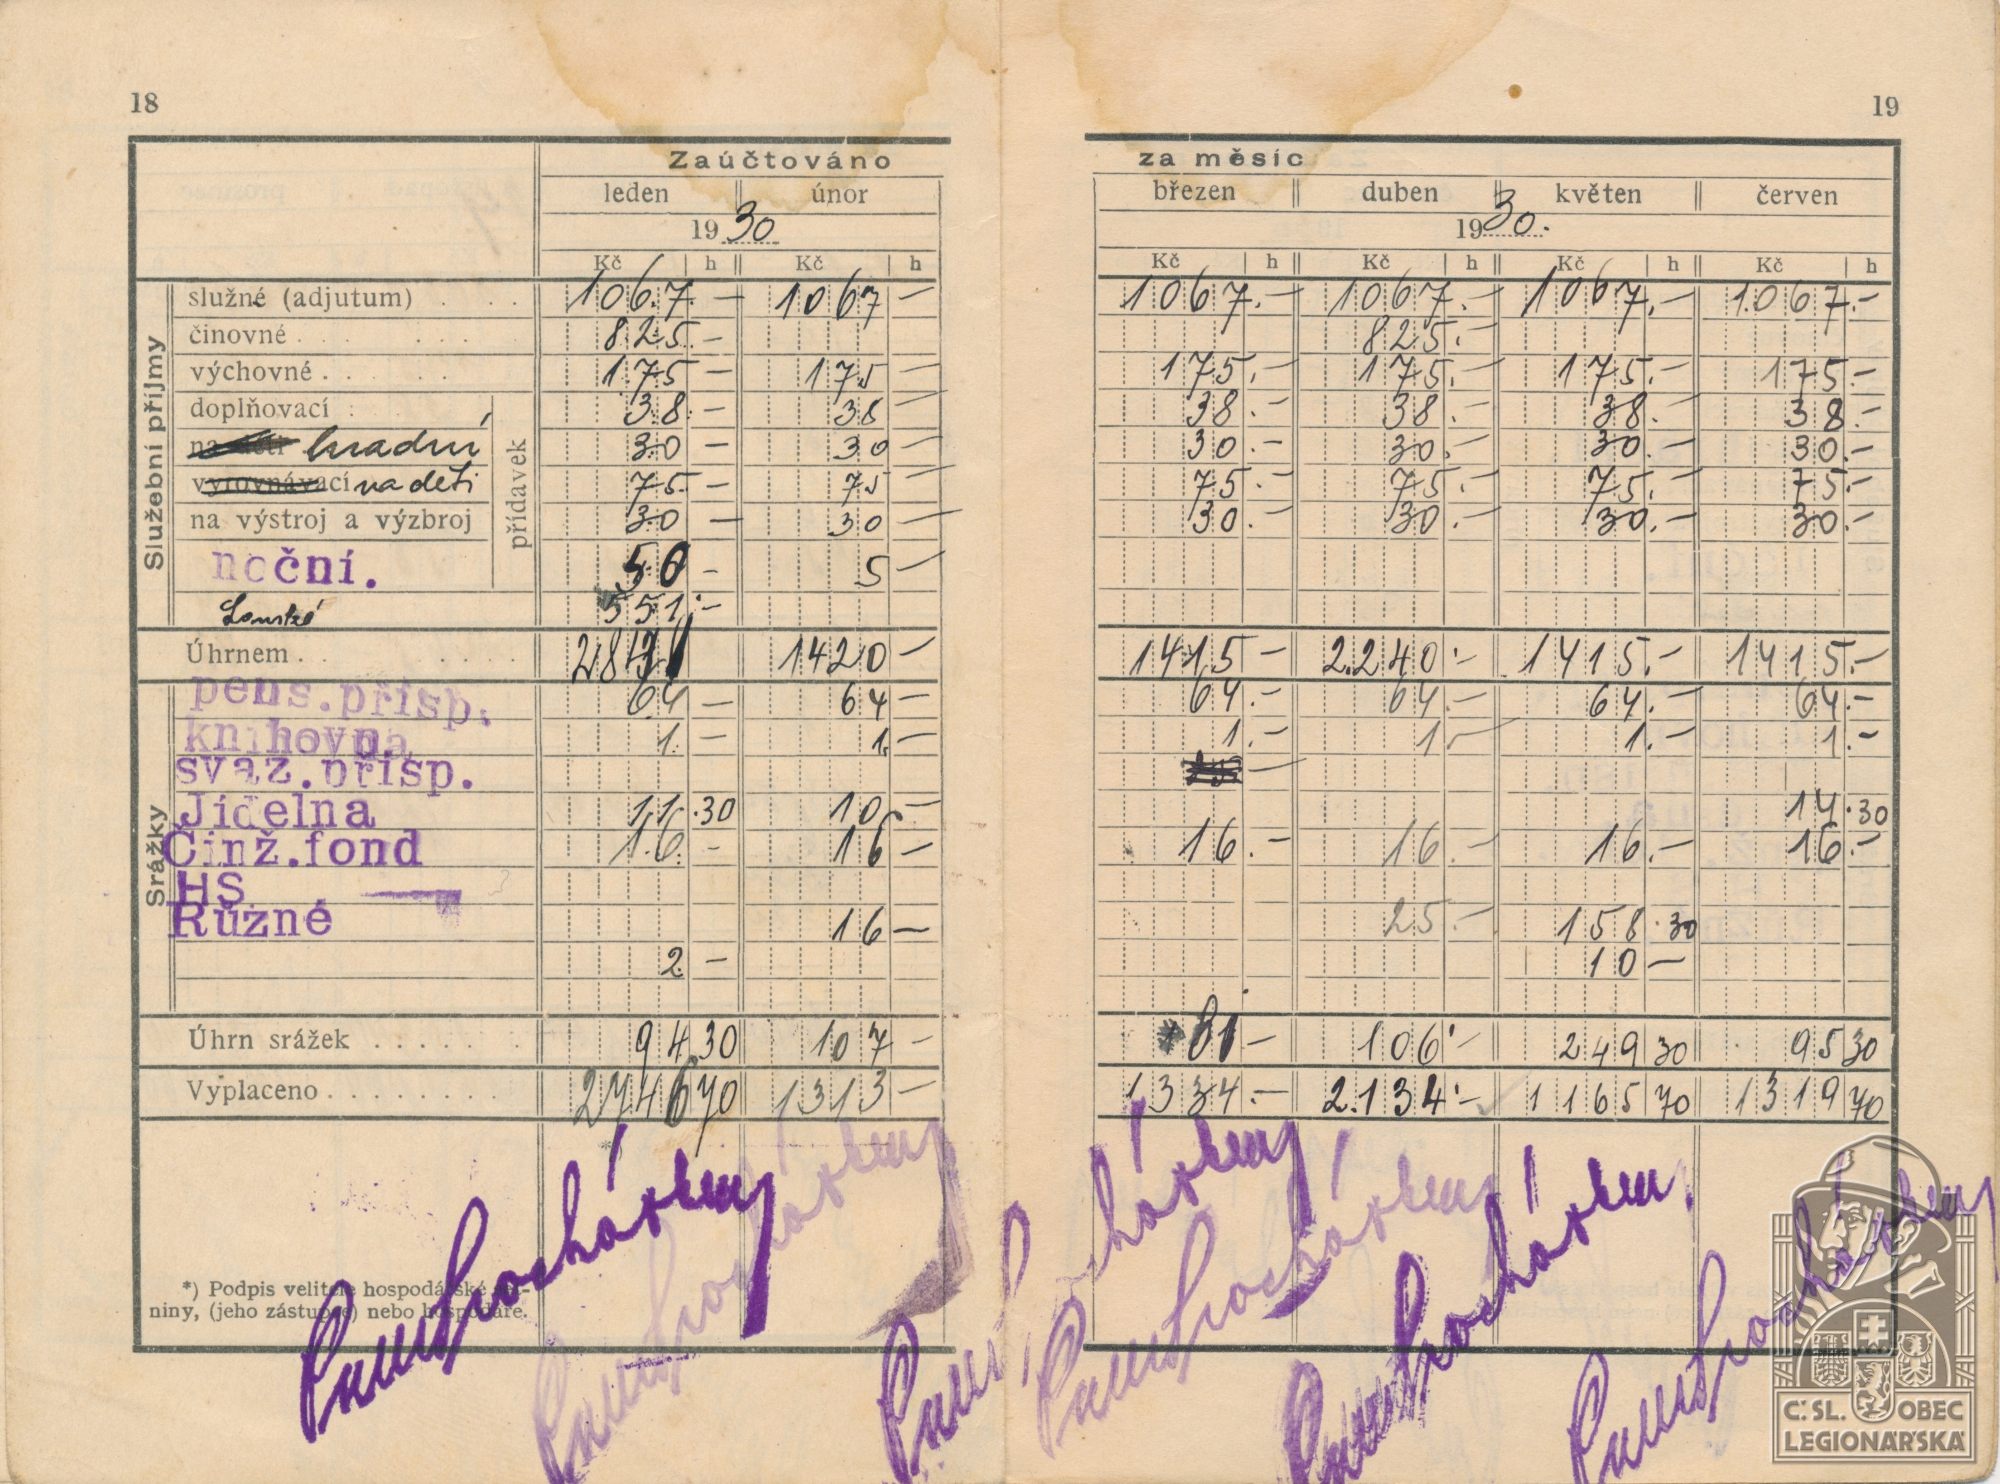 18
19
Zaúčtováno
za měsíc
leden únor
březen duben květen červen
1930
1930.
Kč h Kč h
Kč h Kč h Kč h Kč h
Služební příjmy
přídavek
služné (adjutum) . . . 1067.— 1067— 1067.— 1067.— 1067.— 1067.—
činovné . . . . 825.— 825.—
výchovné . . . . 175— 175— 175.— 175.— 175.— 175.—
doplňovací . 38.— 38— 38.— 38.— 38.— 38.—
na děti hradní 30— 30— 30.— 30.— 30.— 30.—
vyrovnávací na děti 75.— 75— 75.— 75.— 75.— 75.—
na výstroj a výzbroj 30— 30— 30.— 30.— 30.— 30.—
noční. 50— 5—
551.—
Úhrnem . . . . 1420— 1415— 2.240.— 1415.— 1415.—
Srážky
pens.přísp. 64— 64— 64.— 64.— 64.— 64.—
knihovna 1.— 1.— 1.— 1— 1.— 1.—
svaz.přísp.
Jídelna 11.30 10.— 14.30
Činž.fond 16.— 16— 16.— 16.— 16.— 16.—
HS
Různé 16— 25.— 158.30
2— 10—
Úhrn srážek . . . . . 94 30 107— 81— 106.— 249 30 95 30
Vyplaceno . . . . . . . . 2746 70 1313— 1334.— 2.134.— 1165 70 1319 70
*) Podpis velitele hospodářské
niny, (jeho zástupce) nebo hospodáře.
Č.SL. OBEC
LEGIONÁŘSKÁ